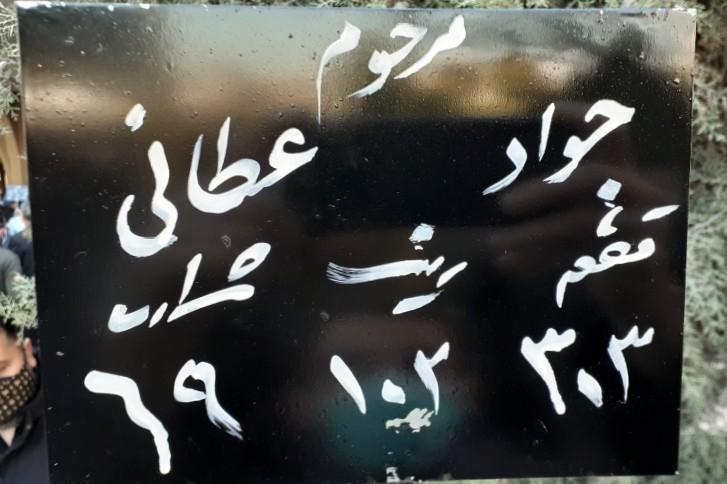 مرحوم
جواد عطائی
قطعه ردیف شماره
۳۰۳ ۱۰۲ ۶۹